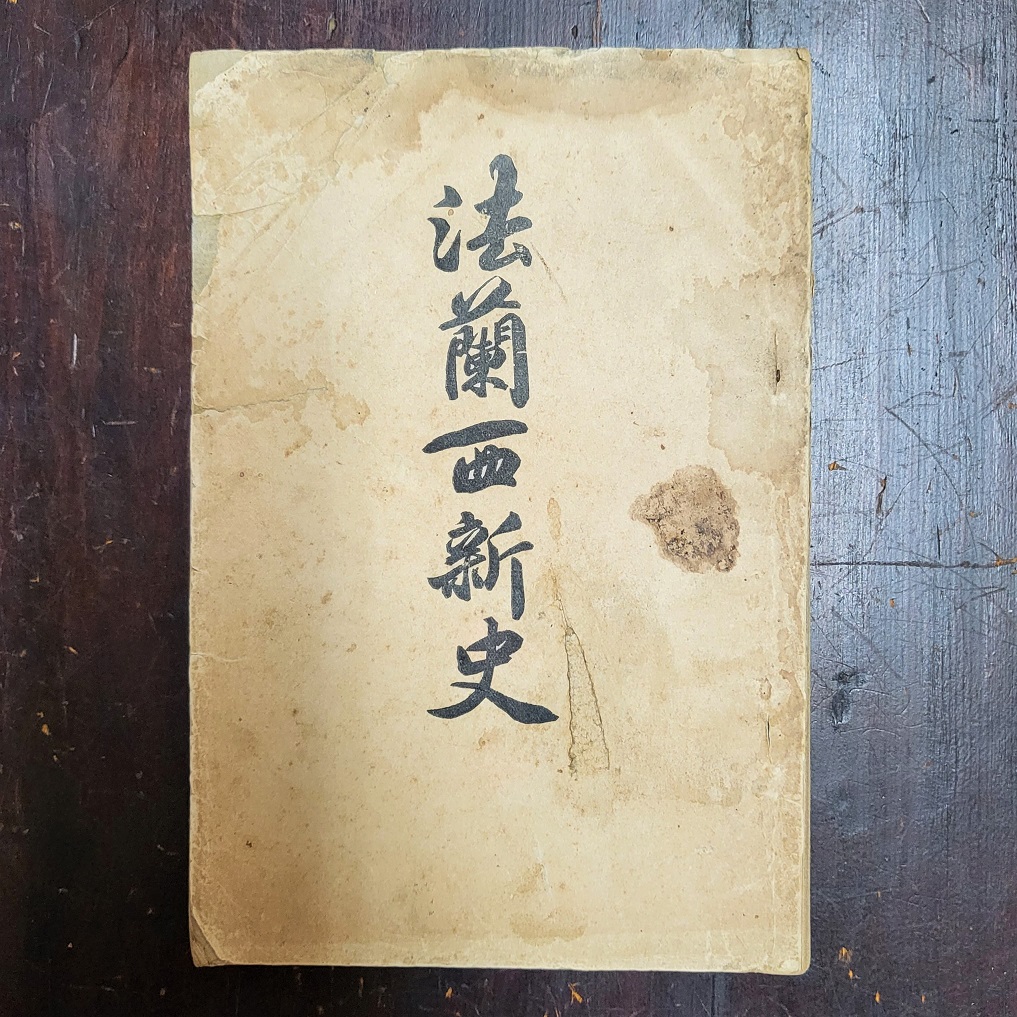 法蘭西新史